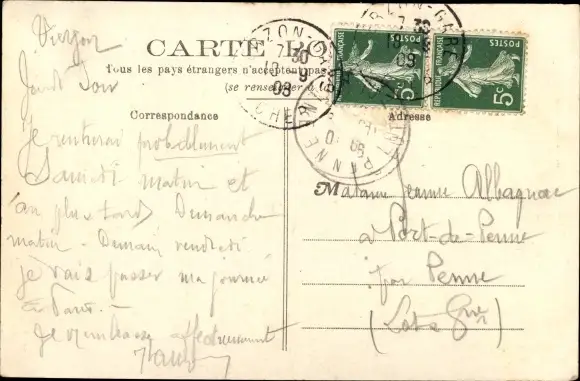 Vierzon
CARTE
Tous les pays étrangers n'acceptent pas
(se renseigner à
Correspondance
Adresse
RÉPUBLIQUE FRANÇAISE
POSTES
5c
RÉPUBLIQUE FRANÇAISE
POSTES
5c
ZON-GARE
7 30
9
08
CHER
PENNE
08
Jeudi Soir
Je rentrerai probablement
Samedi matin et
(au plus tard) Dimanche
matin - Demain vendredi
je vais passer ma journée
à Paris -
Je t'embrasse affectueusement
Madame Jeanne Albagnac
à Port-de-Penne
par Penne
(Lot & Gar)